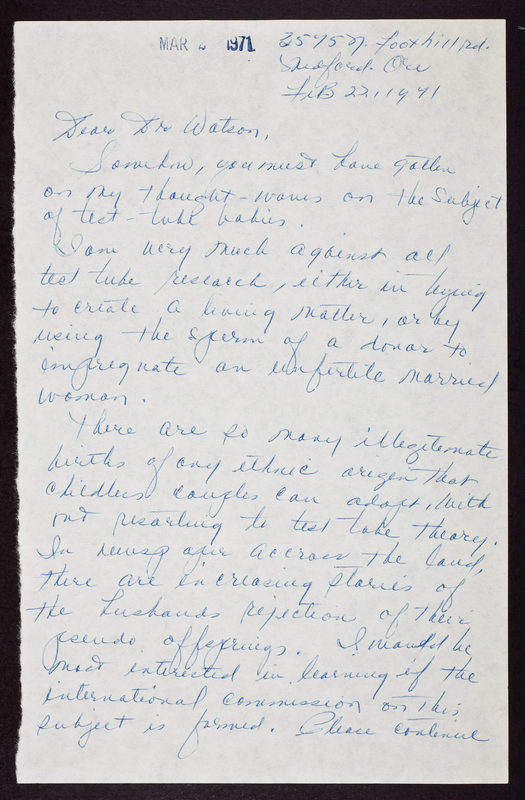 MAR 2 1971
3545 N. Foothill Rd.
Medford. Ore
FeB 22, 1971
Dear Dr Watson,
Somehow, you must have gotten
on my thought-waves on the Subject
of test-tube babies.
I am very much against all
test tube research, either in trying
to create a living matter, or by
using the sperm of a donor to
impregnate an unfertile married
woman.
There are so many illegitemate
births of any ethnic origen that
childless couples can adopt, with
out resorting to test tube theory.
In newspaper accross the land,
there are increasing stories of
the husbands rejection of their
pseudo offsprings. I would be
most interested in learning if the
international commission on this
subject is formed. Please continue